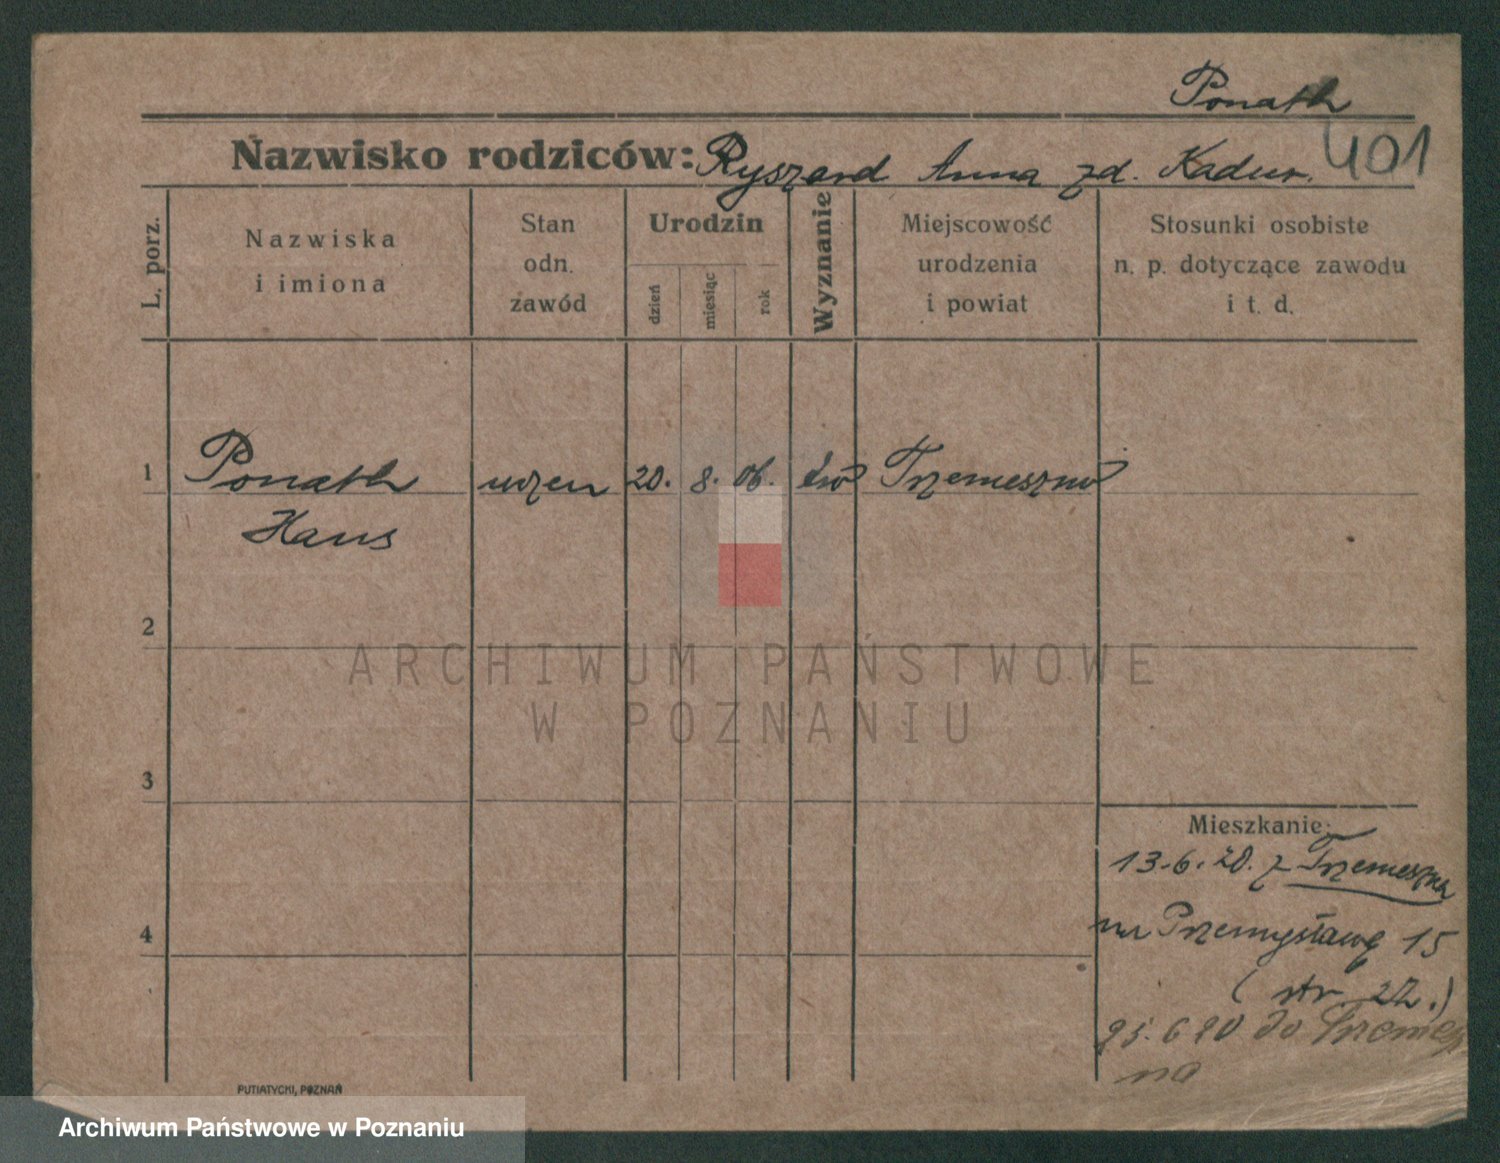 Ponath
Nazwisko rodziców: Ryszard Anna zd. Kadur. 401
L. porz.
Nazwiska
i imiona
Stan
odn.
zawód
Urodzin
dzień
miesiąc
rok
Wyznanie
Miejscowość
urodzenia
i powiat
Stosunki osobiste
n. p. dotyczące zawodu
i t. d.
1 Ponath uczen 20. 8. 06. ew Trzemeszno
Hans
2
ARCHIWUM PAŃSTWOWE
W POZNANIU
3
Mieszkanie:
13.6.20. z Trzemeszna
4
na Przemysławę 15
(str. 22.)
25.6 20 do Trzemesz
no
PUTIATYCKI, POZNAŃ
Archiwum Państwowe w Poznaniu